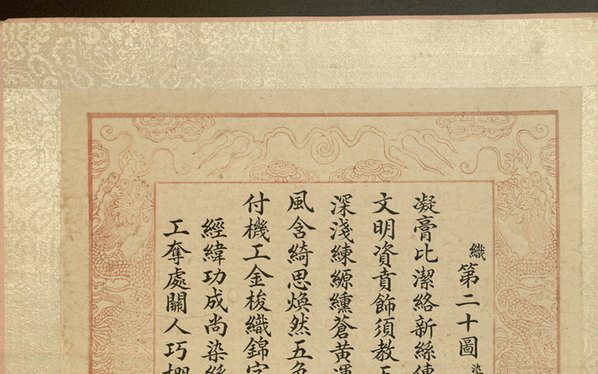 織第二十圖染
凝膏比潔絡新絲傳
文明資賁飾須教五
深淺練綟纁蒼黃運
風含綺思煥然五色
付機工金梭織錦字
經緯功成尚染絲
工奪處關人巧機